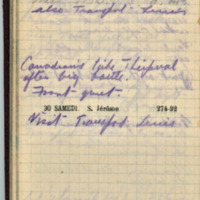 also Transport
Canadians take Thiepval
after big battle.
Front quiet.
30 SAMEDI S. Jérôme 274-92
Visit Transport lines